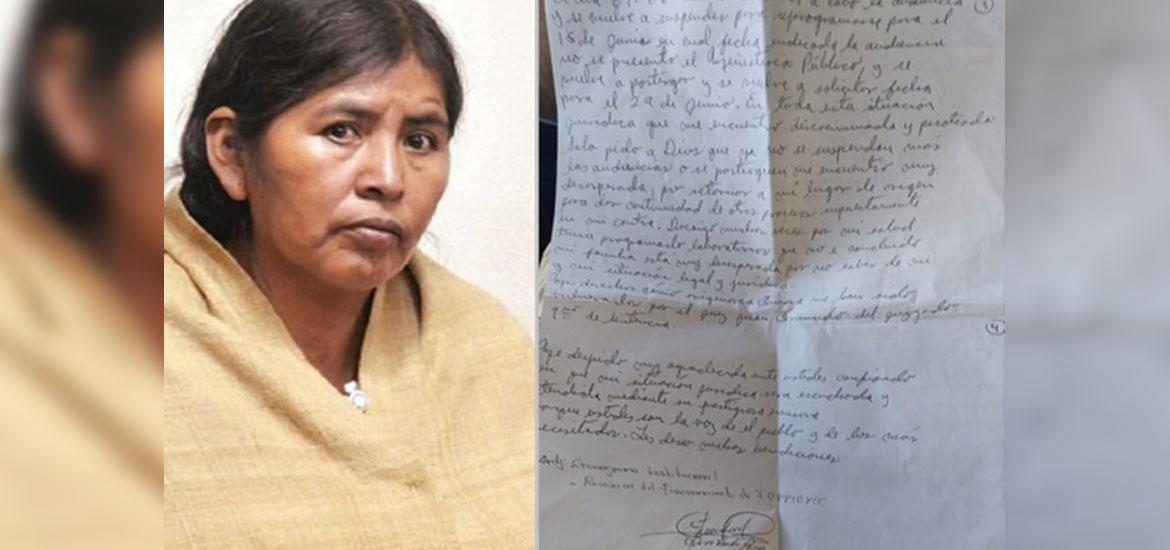 y se vuelve a suspender para reprogramarse para el
15 de Junio en cual fecha indicada la audiencia
no se presentó el Ministerio Público, y se
vuelve a postergar y se vuelve a solicitar fecha
para el 29 de Junio. En toda esta situación
Jurídica que me encuentro discriminada y pisoteada
Solo pido a Dios que ya no se suspendan más
las audiencias o se posterguen me encuentro muy
desesperada, por retornar a mi lugar de origen
para dar continuidad de otros procesos supuestamente
en mi contra. Decaigo muchas veces por mi salud
tenia programado laboratorios que no e concluido
mi familia está muy desesperada por no saber de mi
y mi situación legal y jurídica.
derechos como originaria me han sido
vulnerados por el juez Juan del juzgado
de Sentencia
4
despido muy agradecida ante ustedes confiando
en que mi situación jurídica sera escuchada y
mediante su prestigiosa emisora
porque ustedes son la voz de el pueblo y de los más
necesitados. Les deseo muchas bendiciones
Adj: institucional
- del de